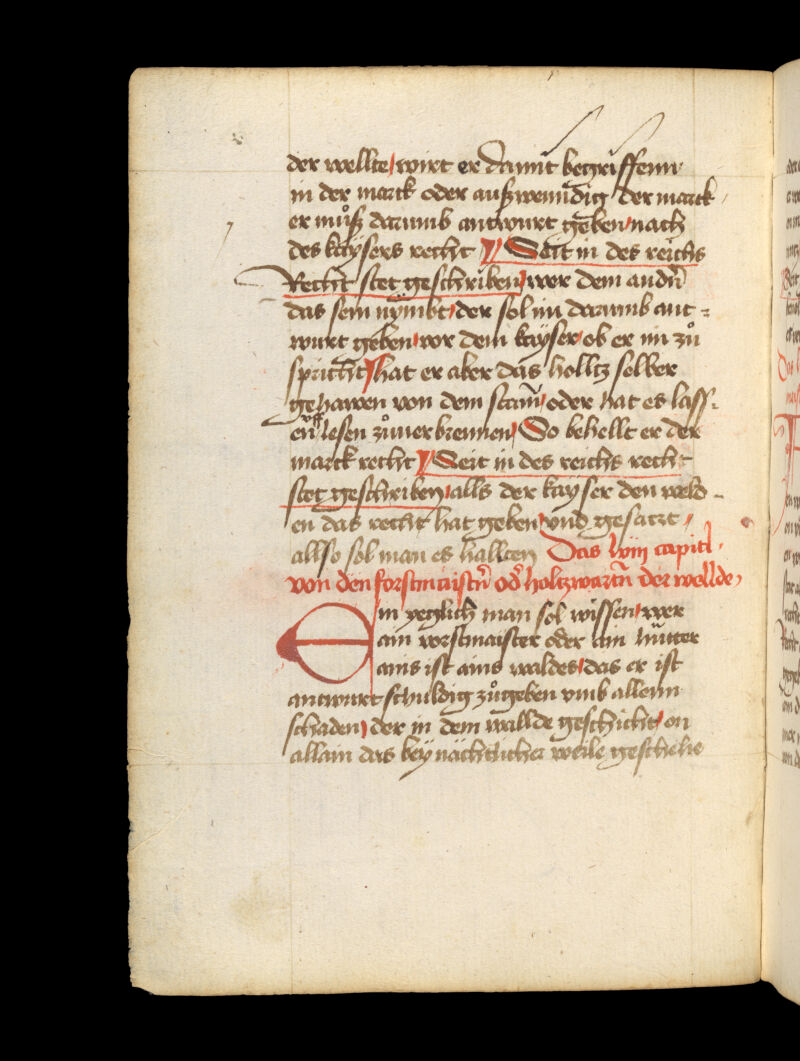 der wellte / wirt er damit begriffenn
in der marck oder außwenndig der marck /
er muͦß darumb antwurt geben / nach
des kaysers recht Seit in des reichs
Recht stet geschriben / wer dem andn̄
das sein nymbt / der sol im darumb ant =
wurt geben / vor dem kayser / ob er im zuͦ
spricht / hat er aber das holltz selber
gehawen von dem stam̄ / oder hat es lass-
en auff lesen zuͦuerbrennen / So behellt er der
marck recht Seit in des reichs recht
stet geschriben / alls der kayser den weld -
en das recht hat geben / vnd gesaczt /
allso sol man es hallten Das lviij capitl .
von den forstmaistn̄ od̄ holtzwartn̄ der wellde /
Ein yeglich man sol wissen / wer
ain vorstmaister oder ain hütter
ains ist ains waldes / das er ist
antwurt schuldig zuͦgeben vmb allenn
schaden / der in dem wallde geschicht / on
allain das bey nächtlicher weile geschehe